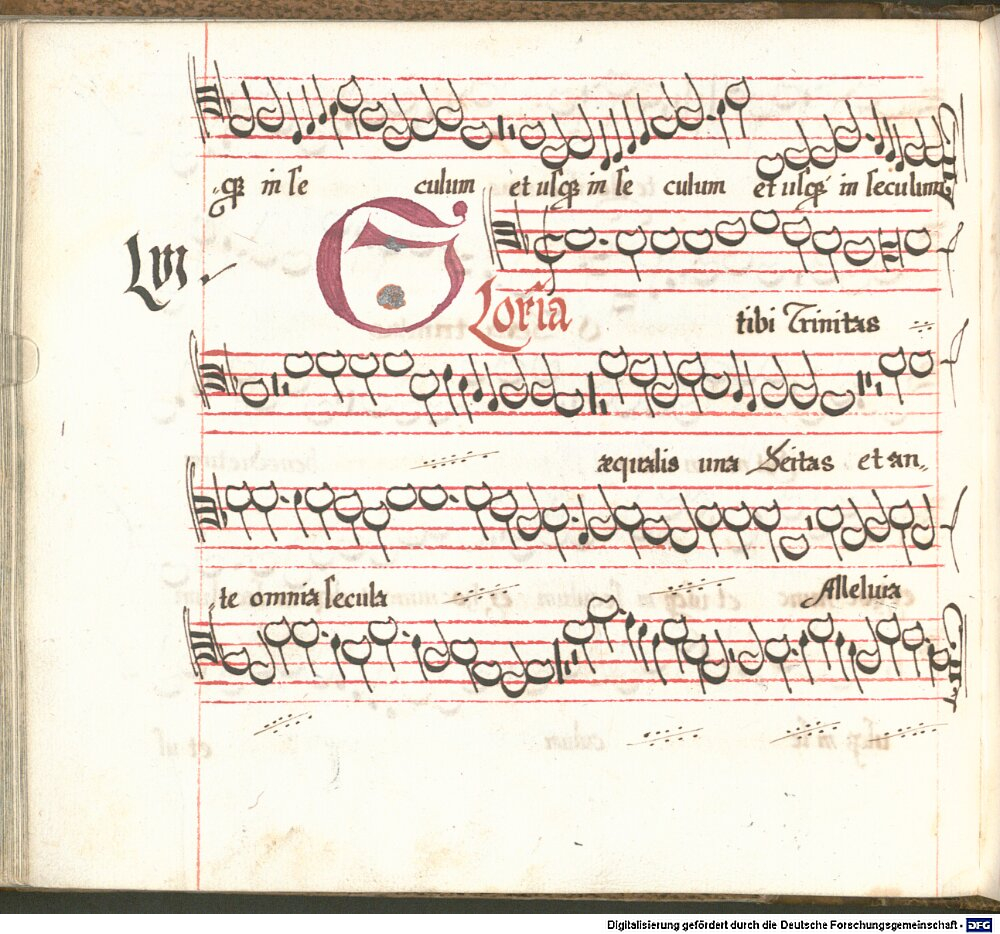 qꝫ in se culum et usqꝫ in se culum et usqꝫ in seculum
LVI.
Gloria
tibi Trinitas
æqualis una Deitas et an„
te omnia secula Alleluia
Digitalisierung gefördert durch die Deutsche Forschungsgemeinschaft - DFG